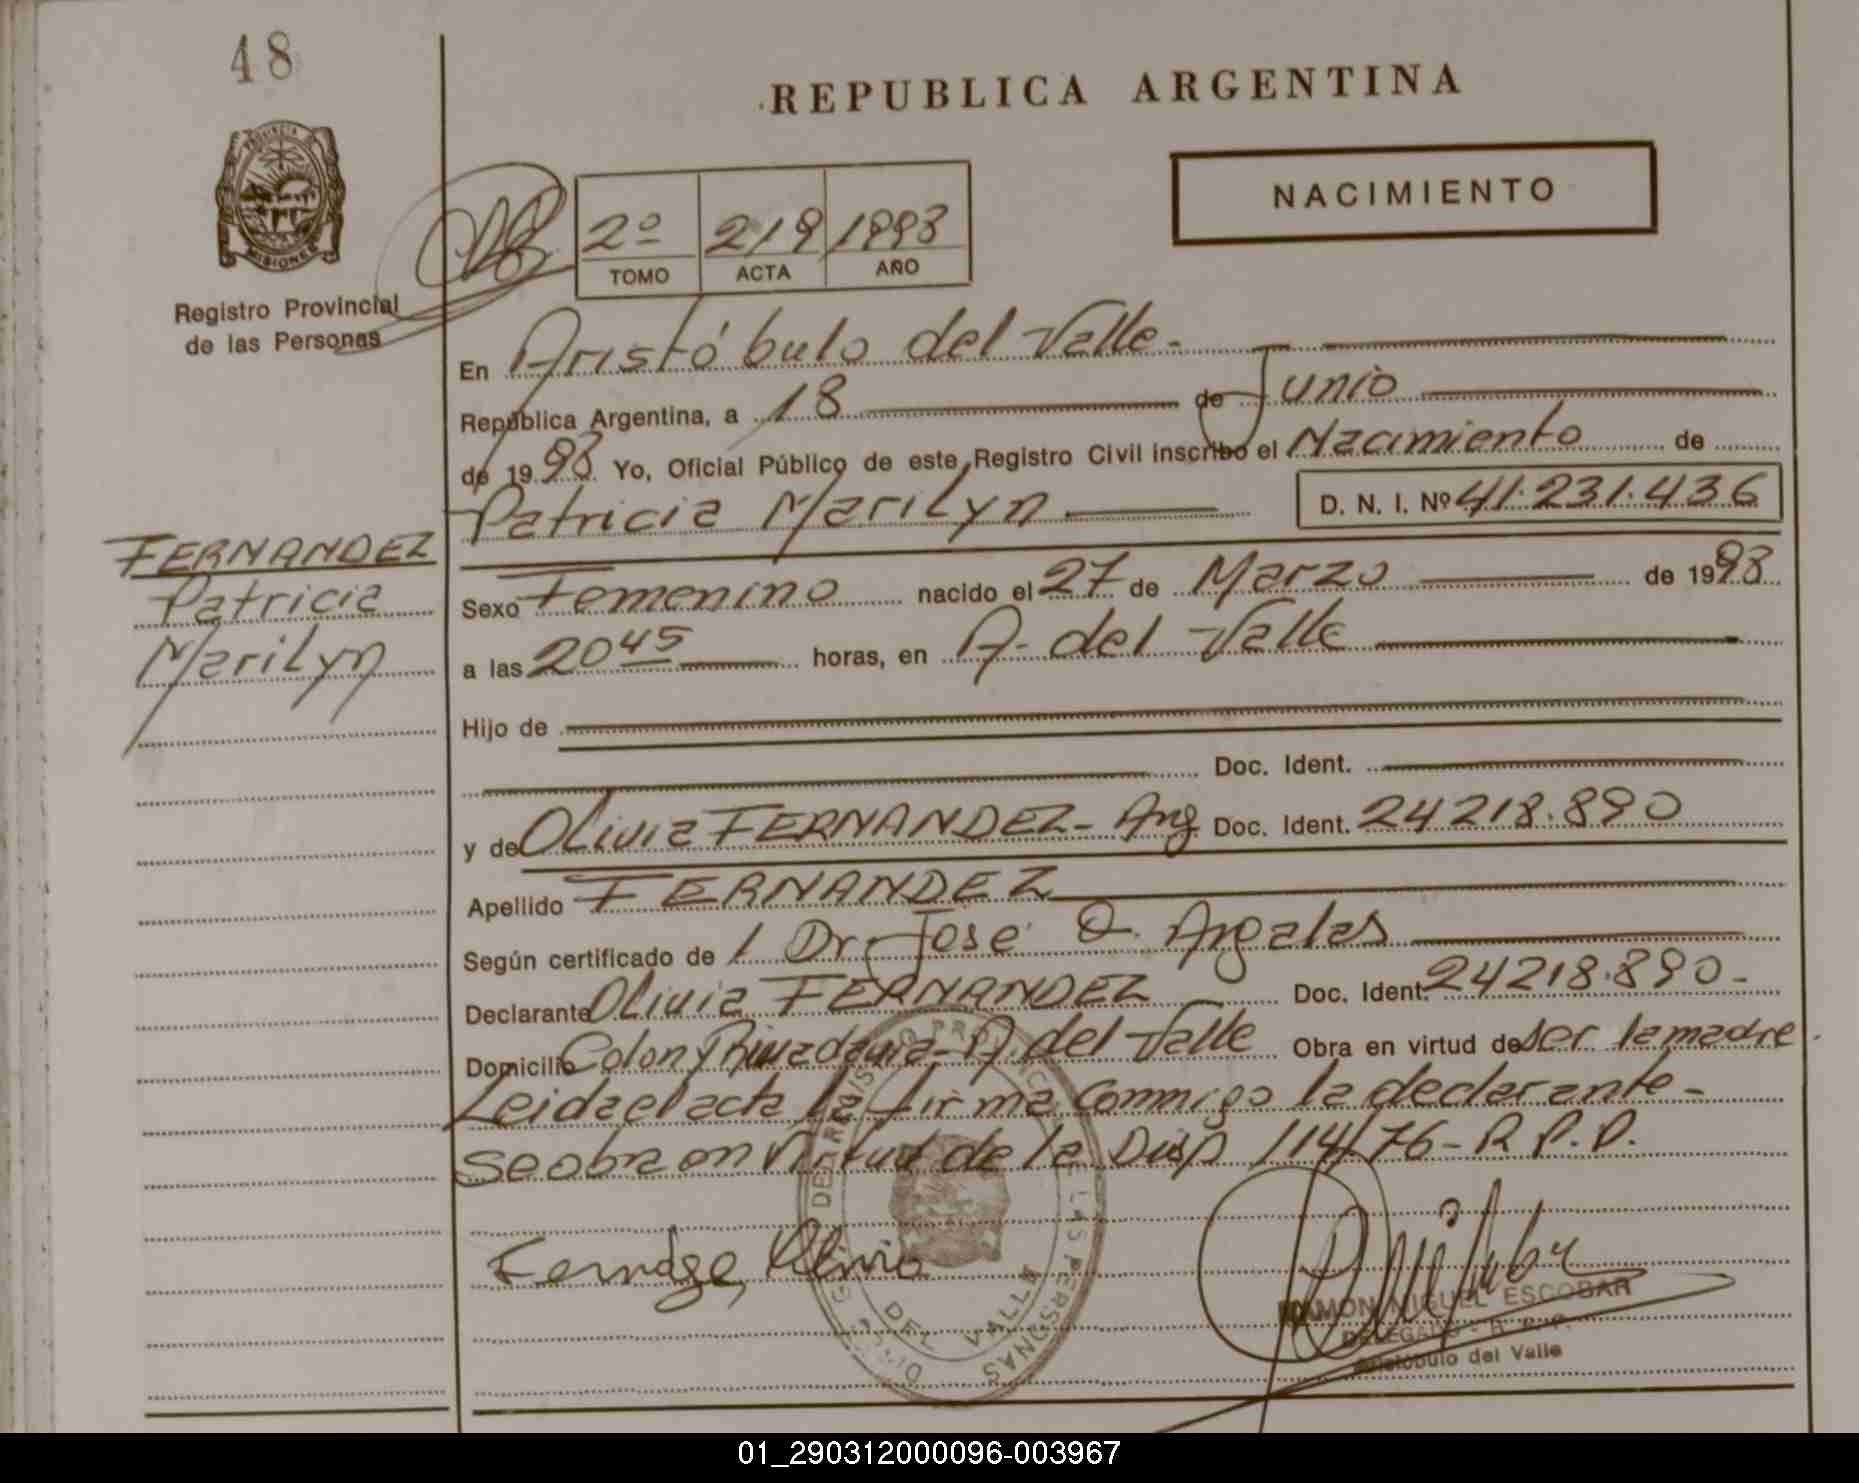 48
REPUBLICA ARGENTINA
PROVINCIA DE
MISIONES
Registro Provincial
de las Personas
2º 219 1998
TOMO ACTA AÑO
NACIMIENTO
En Aristóbulo del Valle-
República Argentina, a 18 de Junio
de 1998 Yo, Oficial Público de este Registro Civil inscribo el Nacimiento de
Patricia Marilyn D. N. I. Nº 41.231.436
FERNANDEZ
Patricia
Marilyn
Sexo Femenino nacido el 27 de Marzo de 1998
a las 20 45 horas, en A. del Valle
Hijo de
Doc. Ident.
y de Olivia FERNANDEZ- Arg Doc. Ident. 24218.890
Apellido FERNANDEZ
Según certificado de 1 Dr José O. Argalas
Declarante Olivia FERNANDEZ Doc. Ident. 24218.890-
Domicilio Colon y Rivadavia- A del Valle Obra en virtud de ser la madre.
Leida el acta la firma conmigo la declarante-
se obra en virtud de la Disp 114/76- R.P.P.
Olivia
DEL VALLE
DE LAS PERSONAS
RAMON MIGUEL ESCOBAR
DELEGADO - R. R. P.
Aristóbulo del Valle
01_290312000096-003967